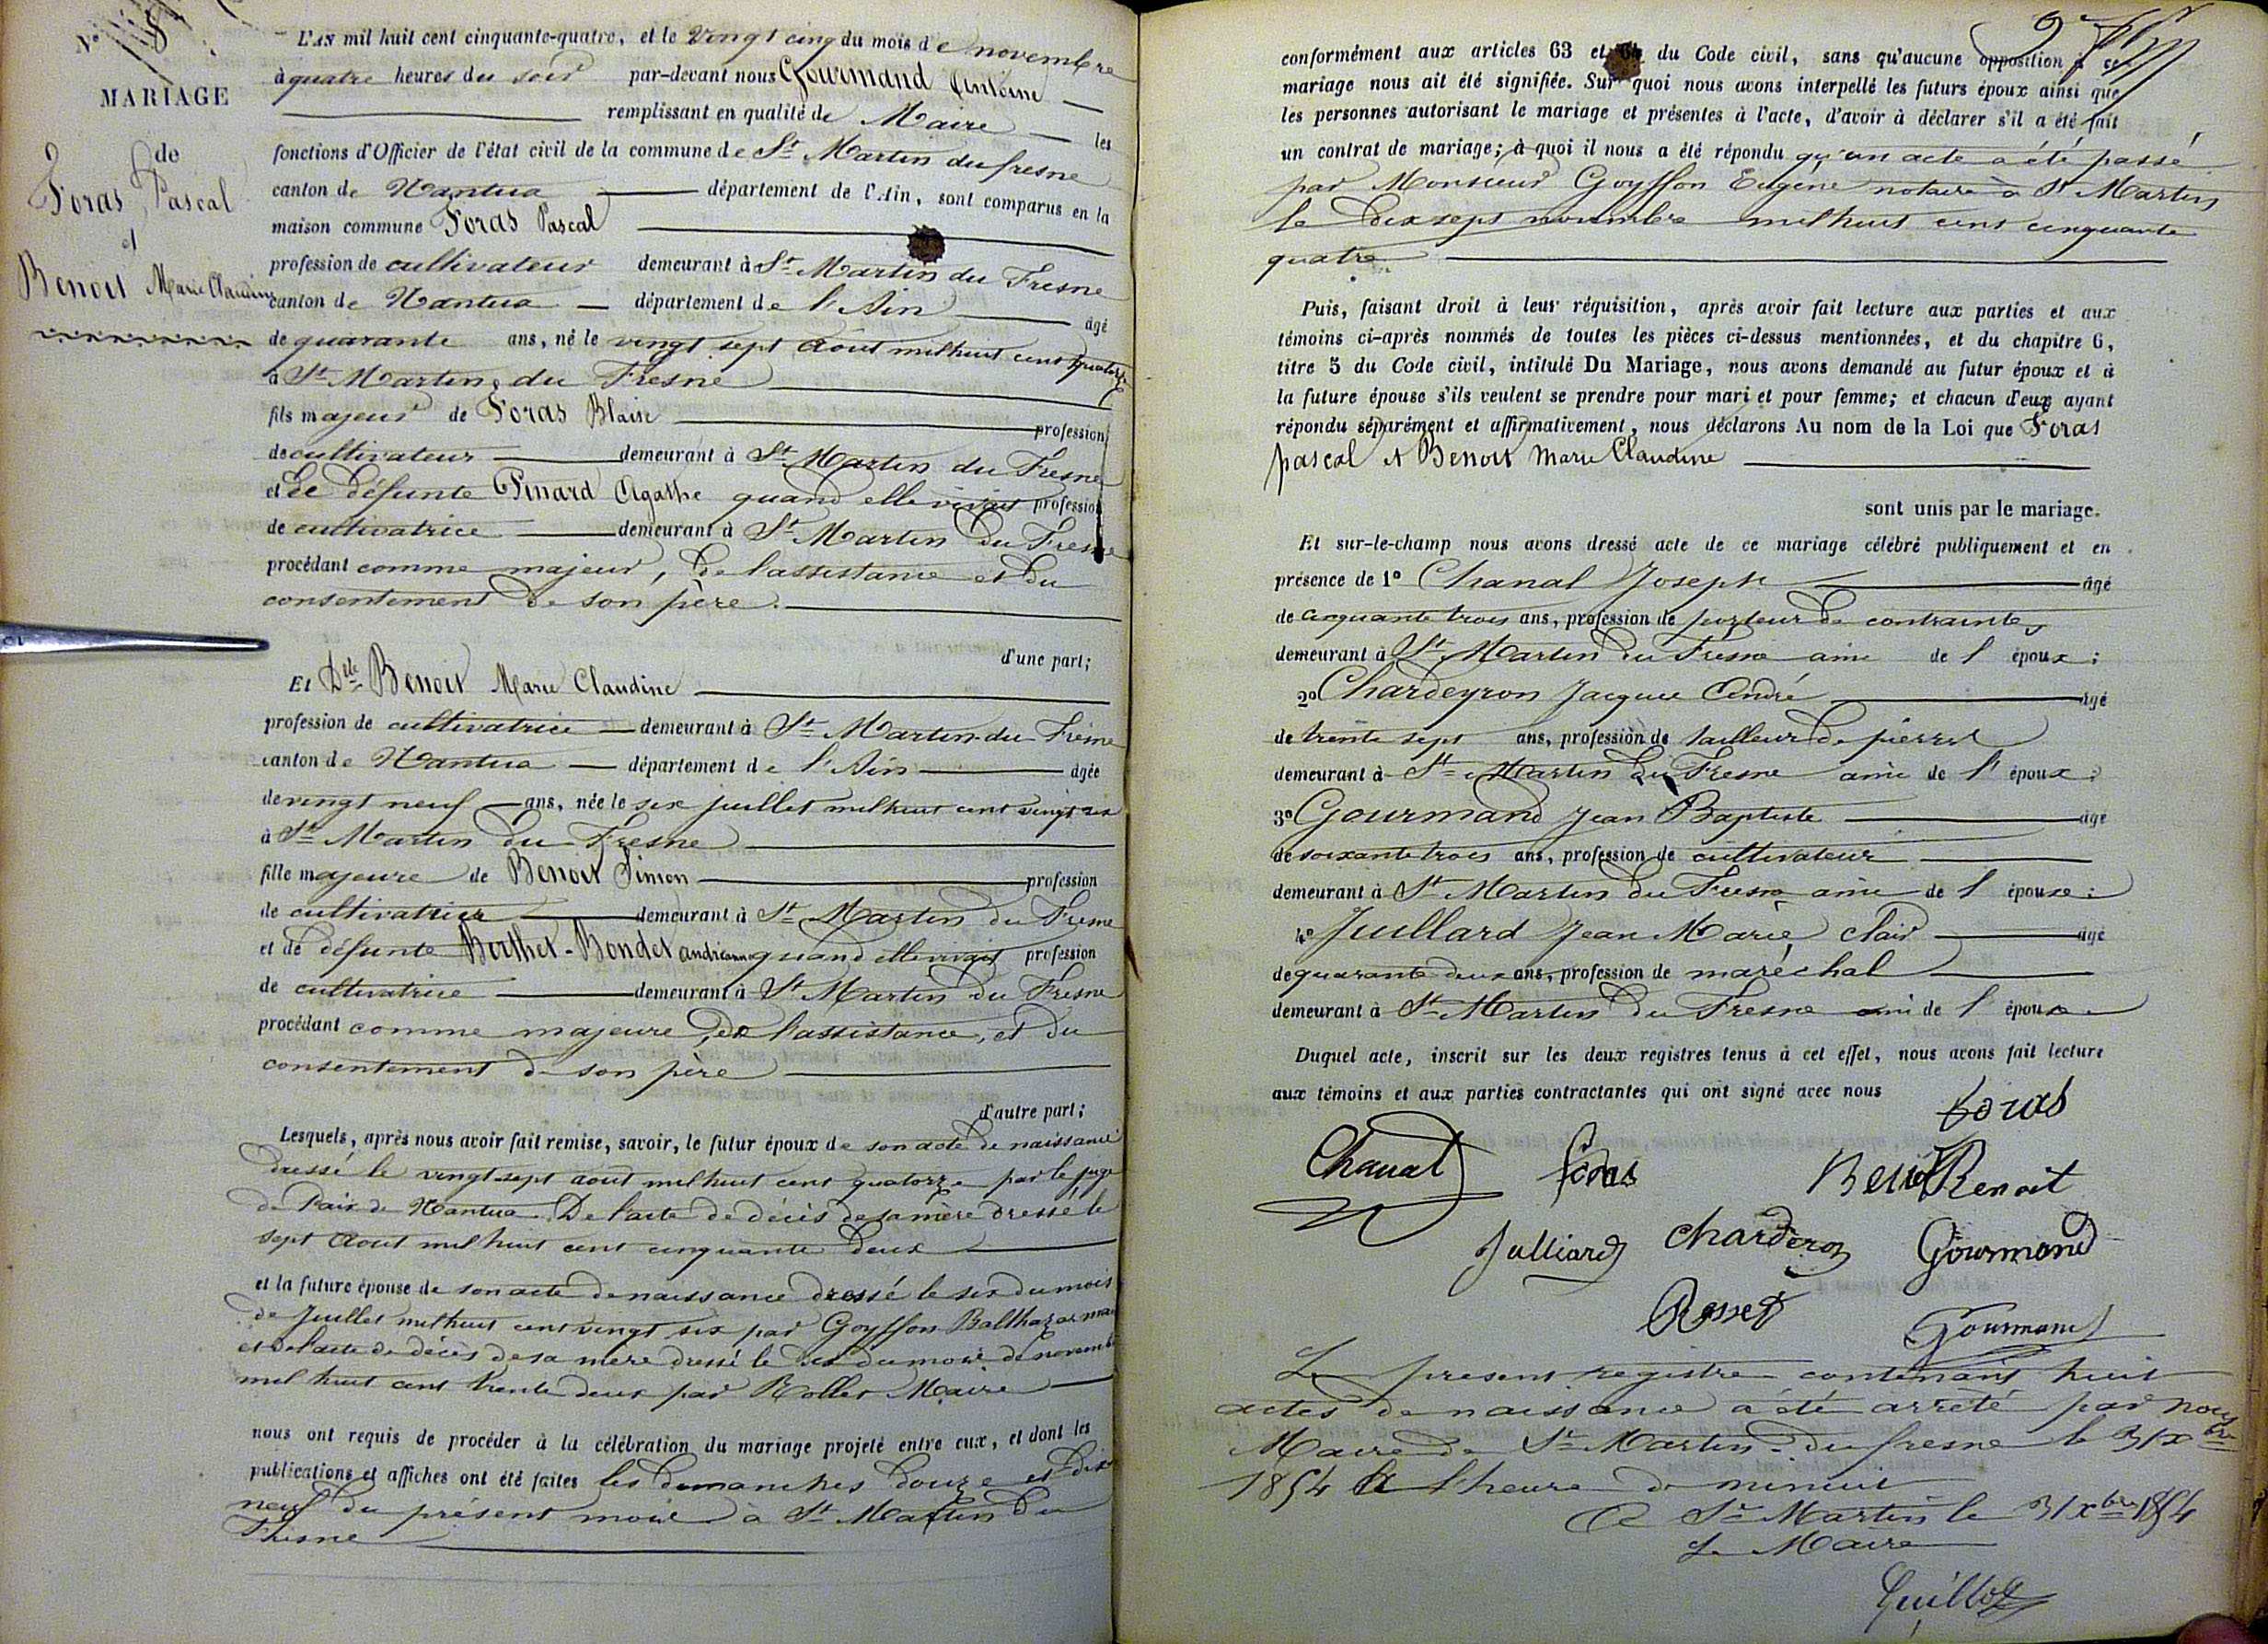 N° 8
MARIAGE
de
Foras Pascal
et
Benoit Marie Claudine
L'AN mil huit cent cinquante-quatre, et le vingt cinq du mois de novembre
à quatre heures du soir par-devant nous Gourmand Antoine
remplissant en qualité de Maire les
fonctions d'Officier de l'état civil de la commune de St Martin du fresne
canton de Nantua département de l'Ain, sont comparus en la
maison commune Foras Pascal
profession de cultivateur demeurant à St Martin du Fresne
canton de Nantua département de l'Ain âgé
de quarante ans, né le vingt sept Août mil huit cent quatorze
à St Martin du Fresne
fils majeur de Foras Blaise profession
de cultivateur demeurant à St Martin du Fresne
et de défunte Pinard Agathe quand elle vivait profession
de cultivatrice demeurant à St Martin du Fresne
procédant comme majeur, de l'assistance et du
consentement de son père.
d'une part;
Et Dlle Benoit Marie Claudine
profession de cultivatrice demeurant à St Martin du Fresne
canton de Nantua département de l'Ain âgée
de vingt neuf ans, née le six juillet mil huit cent vingt six
à St Martin du Fresne
fille majeure de Benoit Simon profession
de cultivatrice demeurant à St Martin du Fresne
et de défunte Berthet-Bondet andréanne quand elle vivait profession
de cultivatrice demeurant à St Martin du Fresne
procédant comme majeure, de l'assistance, et du
consentement de son père
d'autre part;
Lesquels, après nous avoir fait remise, savoir, le futur époux de son acte de naissance
dressé le vingt sept aout mil huit cent quatorze par le juge
de Paix de Nantua. De l'acte de décès de sa mère dressé le
sept Aout mil huit cent cinquante deux
et la future épouse de son acte de naissance dressé le six du mois
de Juillet mil huit cent vingt six par Goyffon Balthazar mai
et de l'acte de décès de sa mère dressé le six du mois de novemb
mil huit cent trente deux par Rollet Maire
nous ont requis de procéder à la célébration du mariage projeté entre eux, et dont les
publications et affiches ont été faites les dimanches douze et dix
neuf du présent mois à St Martin du
Fresne
conformément aux articles 63 et du Code civil, sans qu'aucune opposition à ce
mariage nous ait été signifiée. Sur quoi nous avons interpellé les futurs époux ainsi que
les personnes autorisant le mariage et présentes à l'acte, d'avoir à déclarer s'il a été fait
un contrat de mariage; à quoi il nous a été répondu qu'un acte a été passé
par Monsieur Goyffon Eugène notaire à St Martin
le dix sept novembre mil huit cent cinquante
quatre
Puis, faisant droit à leur réquisition, après avoir fait lecture aux parties et aux
témoins ci-après nommés de toutes les pièces ci-dessus mentionnées, et du chapitre 6,
titre 5 du Code civil, intitulé Du Mariage, nous avons demandé au futur époux et à
la future épouse s'ils veulent se prendre pour mari et pour femme; et chacun d'eux ayant
répondu séparément et affirmativement, nous déclarons Au nom de la Loi que Foras
pascal et Benoit Marie Claudine
sont unis par le mariage.
Et sur-le-champ nous avons dressé acte de ce mariage célébré publiquement et en
présence de 1° Chanal Joseph âgé
de cinquante trois ans, profession de porteur de contraintes
demeurant à St Martin du Fresne ami de l'époux;
2° Chardeyron Jacques André âgé
de trente sept ans, profession de tailleur de pierres
demeurant à St Martin du Fresne ami de l'époux;
3° Gourmand Jean Baptiste âgé
de soixante trois ans, profession de cultivateur
demeurant à St Martin du Fresne ami de l'épouse;
4° Juillard Jean Marie Clair âgé
de quarante deux ans, profession de maréchal
demeurant à St Martin du Fresne ami de l'épouse
Duquel acte, inscrit sur les deux registres tenus à cet effet, nous avons fait lecture
aux témoins et aux parties contractantes qui ont signé avec nous
Foras
Chanal foras Benoit Benoit
Julliard Charderon Gourmand
Rosset Gourmand
Le présent registre contenant huit
actes de naissance a été arrêté par nous
Maire de St Martin-du fresne le 31 xbre
1854 à l'heure de minuit
A St Martin le 31 xbre 1854
Le Maire
Guilloz